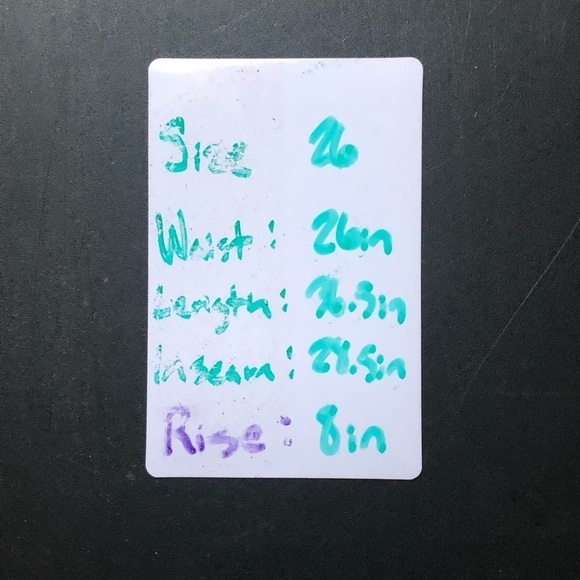 Size 26
Waist: 26in
Length: 36.5in
Inseam: 28.5in
Rise: 8in